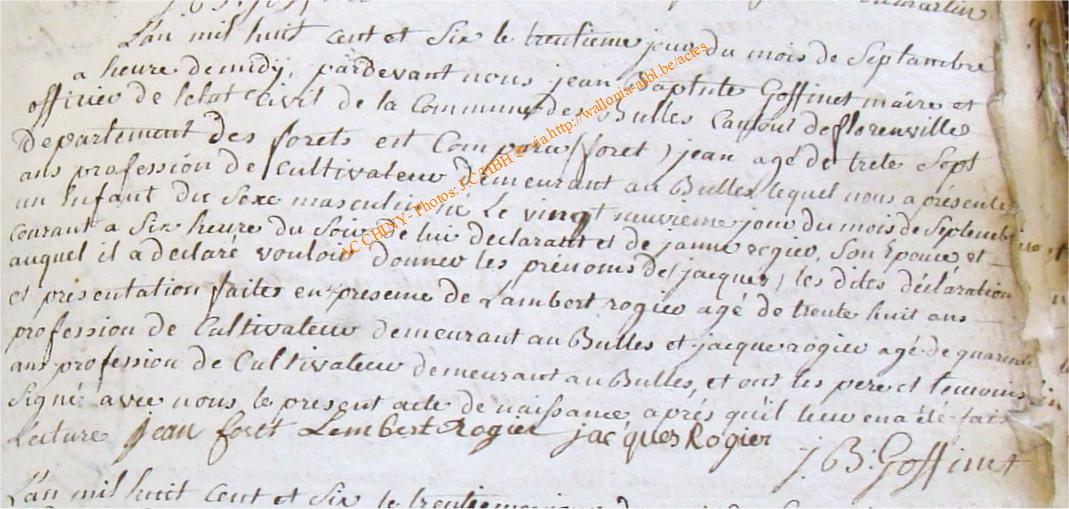 L'an mil huit cent et Six le trentieme jour du mois de Septambre
a heure de midy, pardevant nous jean Baptiste Goffinet maire et
officier de l'etat Civil de la Commune des Bulles Canton de florenville
Departement des forets est Comparu (foret) jean agé de trete Sept
ans profession de Cultivateur demeurant au Bulles lequel nous a présenté
un Enfant du Sexe masculin, né Le vingt neuvieme jour du mois de Septembre
courant a Six heure du Soir de lui declarant et de janne rogier, Son Epouse et
auquel il a declaré vouloir donner les prénoms de (jacques) les dites déclaration
et présentation faites en presence de Lambert rogier agé de trente huit ans
profession de Cultivateur demeurant au Bulles et jacque rogier agé de quarente
ans profession de Cultivateur demeurant au Bulles, et ont les pere et temoins
Signé avec nous le present acte de naissance aprés qu'il leur en a été fait
Lecture jean foret Lembert Rogier jacques Rogier
J B: Goffinet
L'an mil huit cent et Six le trentieme jour
AC CHINY - Photos: J.C.HBH © via http://wallonia-asbl.be/actes